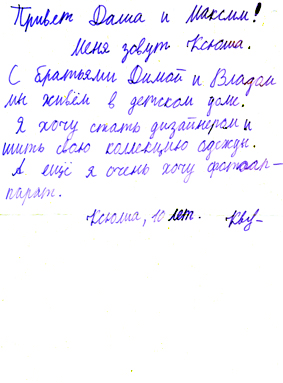 Привет Даша и Максим!
Меня зовут Ксюша.
С братьями Димой и Владом
мы живём в детском доме.
Я хочу стать дизайнером и
шить свою коллекцию одежды.
А ещё я очень хочу фотоап-
парат.
Ксюша, 10 лет.